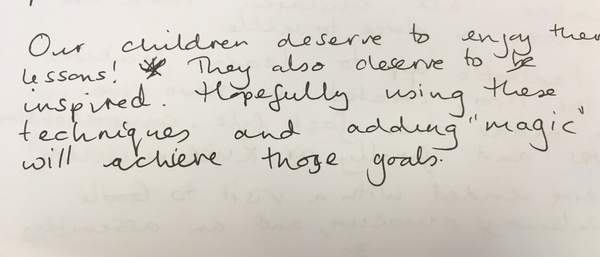 Our children deserve to enjoy their
lessons! They also deserve to be
inspired. Hopefully using these
techniques and adding "magic"
will achieve those goals.